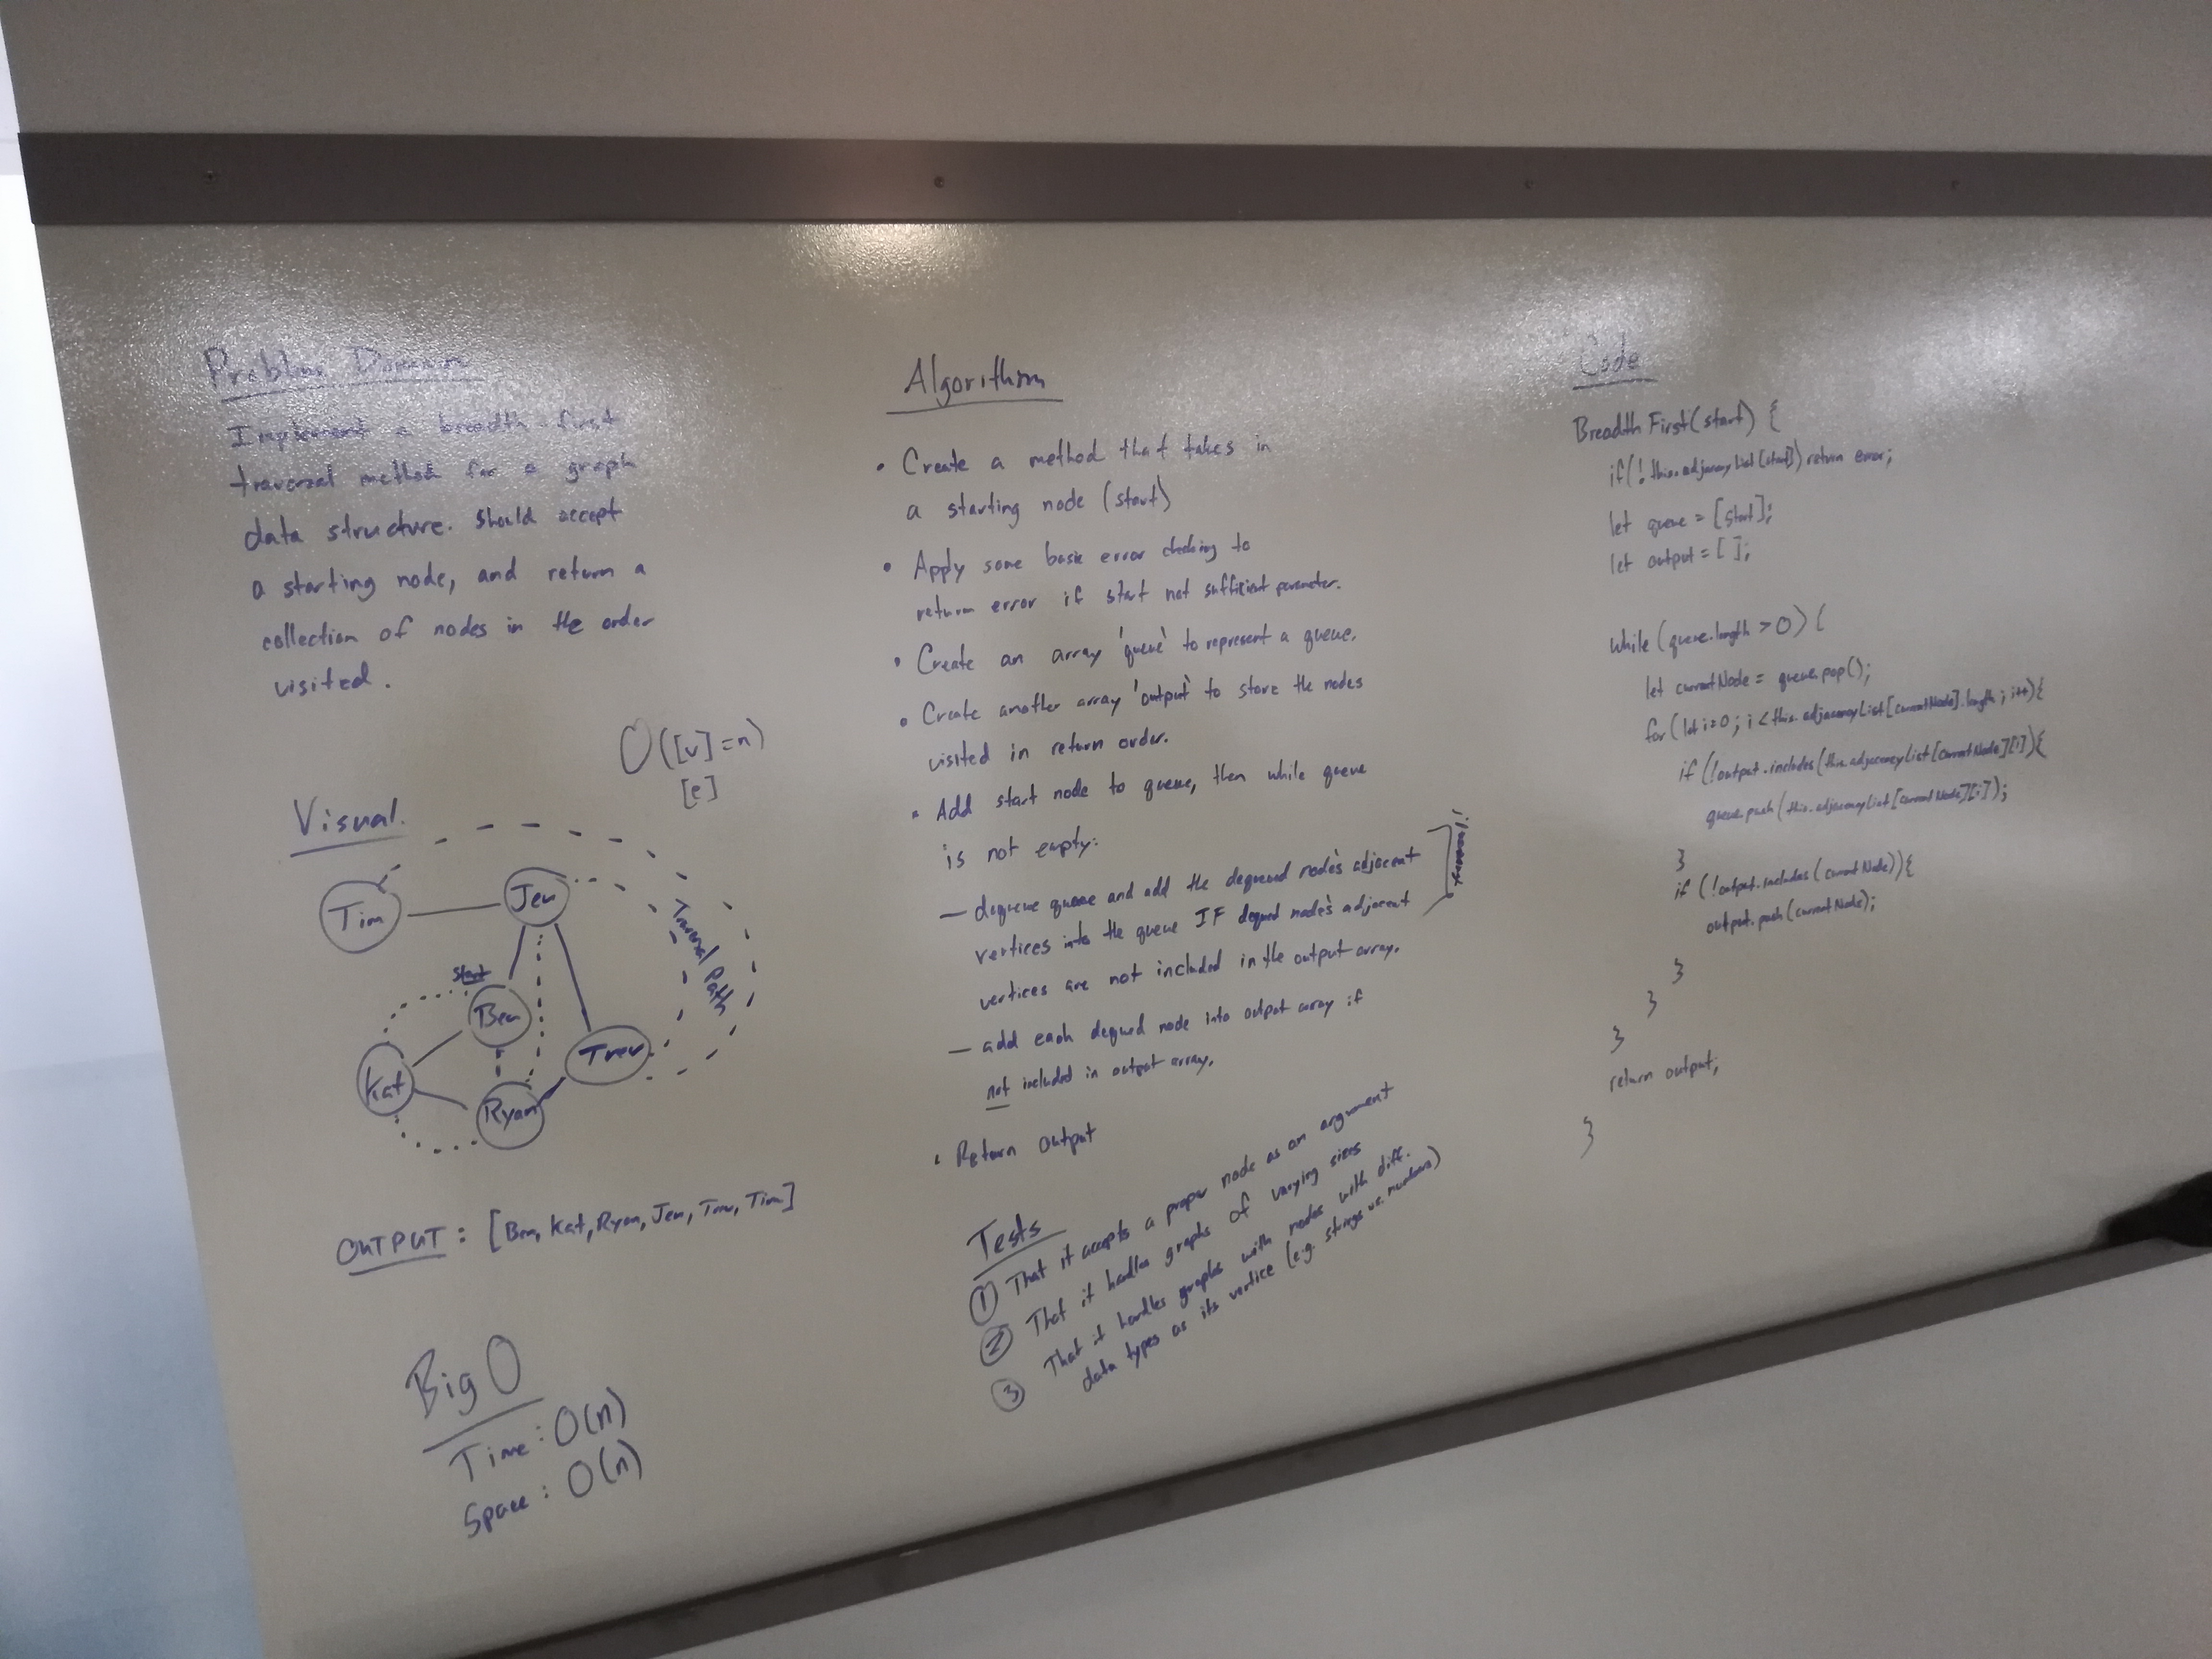 Problem Domain
Implement a breadth-first
traversal method for a graph
data structure. Should accept
a starting node, and return a
collection of nodes in the order
visited.
O([v]=n)
[e]
Visual.
Tim
Jen
Start
Ben
Kat
Ryan
Trev
Traversal Path
OUTPUT: [Ben, Kat, Ryan, Jen, Trev, Tim]
Big O
Time: O(n)
Space: O(n)
Algorithm
• Create a method that takes in
a starting node (start)
• Apply some basic error checking to
return error if start not sufficient parameter.
• Create an array 'queue' to represent a queue.
• Create another array 'output' to store the nodes
visited in return order.
• Add start node to queue, then while queue
is not empty:
— dequeue queue and add the dequeued node's adjacent
vertices into the queue IF dequed node's adjacent
vertices are not included in the output array.
— add each dequed node into output array if
not included in output array.
• Return output
Tests
① That it accepts a proper node as an argument
② That it handles graphs of varying sizes
③ That it handles graphs with nodes with diff.
data types as its vertice (e.g. strings vs. numbers)
Code
BreadthFirst(start) {
if(!this.adjacencyList[start]) return error;
let queue = [start];
let output = [ ];
while (queue.length > 0) {
let currentNode = queue.pop();
for (let i=0; i < this.adjacencyList[currentNode].length; i++){
if (!output.includes(this.adjacencyList[currentNode][i]){
queue.push(this.adjacencyList[currentNode][i]);
}
if (!output.includes(currentNode)){
output.push(currentNode);
}
}
}
return output;
}